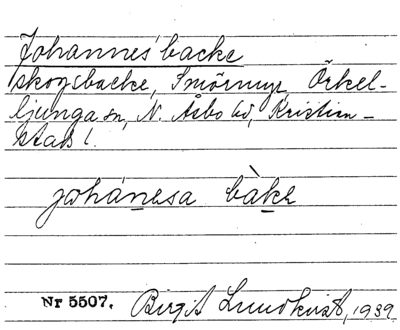 Johannes'backe
skogsbacke, Smörmyr, Örkel-
ljunga sn, N. Åsbo hd, Kristian-
stads l.
johánesa bàke
Nr 5507. Birgit Lundkvist, 1939.